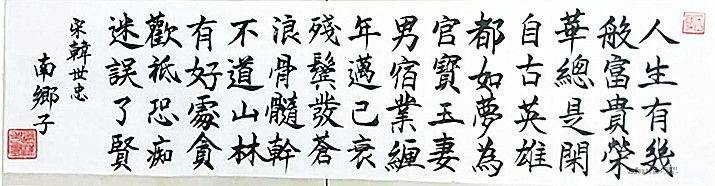 人生有幾
般富貴榮
華總是閑
自古英雄
都如夢為
官寶玉妻
男宿業纏
年邁已衰
殘鬢發蒼
浪骨髓幹
不道山林
有好處貪
歡祗恐痴
迷誤了賢
宋韓世忠
南鄉子